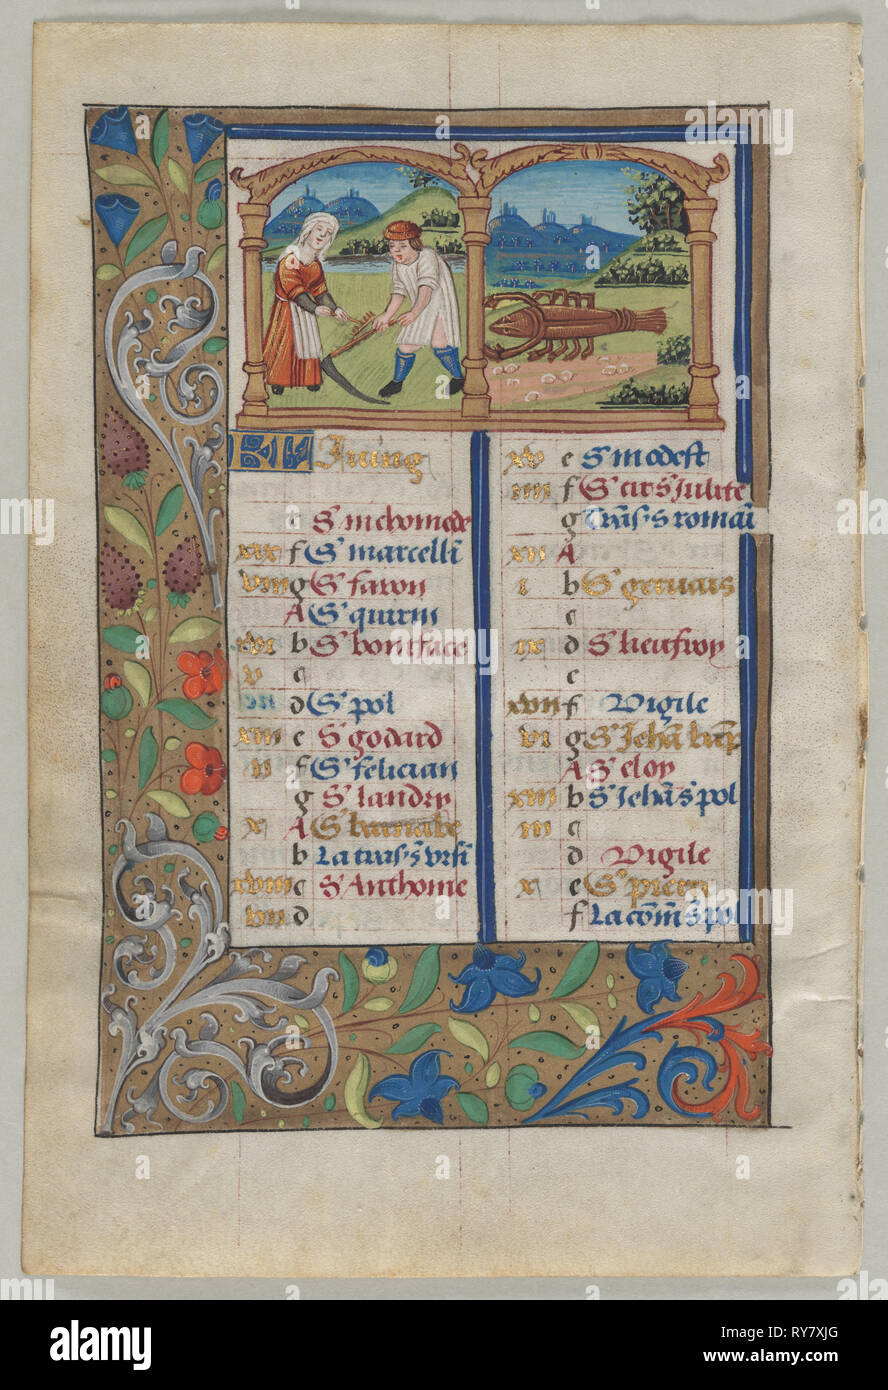 KL Juing
e St nichomede
xix f St marcelli
viii g St faron
A St quirin
xvi b St boniface
v c
d St pol
xiii e St godard
ii f St felician
g St landry
x A St barnabe
b La tras s ursi
xviii c St Anthoine
vii d
xv e St modest
iiii f St cir st Julite
g Tras s romai
xii A
i b St geruais
c
ix d St lieufroy
e
xvii f Vigile
vi g St Jehan bap
A St eloy
xiiii b St Jehas s pol
iii c
d Vigile
x e St pierre
f La com s pol
alamy
Image ID: RY7XJG
www.alamy.com